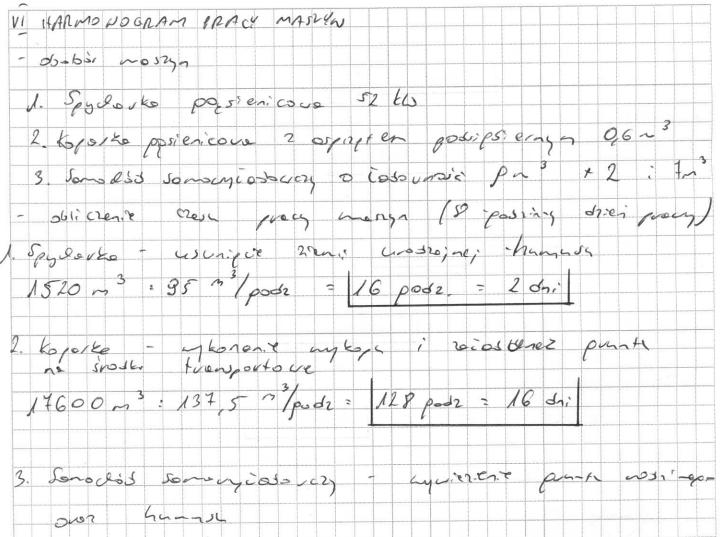 VI HARMONOGRAM PRACY MASZYN
- dobór maszyn
1. Spycharka gąsienicowa 52 kW
2. Koparka gąsienicowa z osprzętem podsiębiernym 0,6 m³
3. Samochód samowyładowczy o ładowności 8 m³ × 2 i 7m³
- obliczenie czasu pracy maszyn (8 godzinny dzień pracy)
1. Spycharka - usunięcie ziemi urodzajnej humusu
1520 m³ : 95 m³/godz = 16 godz. = 2 dni
2. Koparka - wykonanie wykopu i załadunek gruntu
na środki transportowe
17600 m³ : 137,5 m³/godz = 128 godz = 16 dni
3. Samochód samowyładowczy - wywiezienie gruntu
oraz humusu